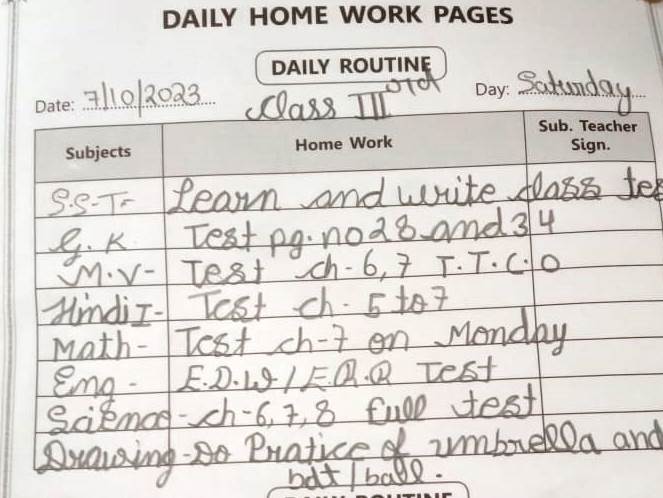 DAILY HOME WORK PAGES
DAILY ROUTINE
Date: 7/10/2023 Class III ord Day: Saturday
Subjects Home Work Sub. Teacher Sign.
S.S.T- Learn and write class tes
G.K Test pg. no 28 and 34
M.V- Test ch-6,7 T.T.C.O
Hindi I- Test ch- 5 to 7
Math- Test ch-7 on Monday
Eng - E.D.W/E.Q.Q Test
Science - ch-6,7,8 full test
Drawing - Do Pratice of umbrella and
bat/ball.